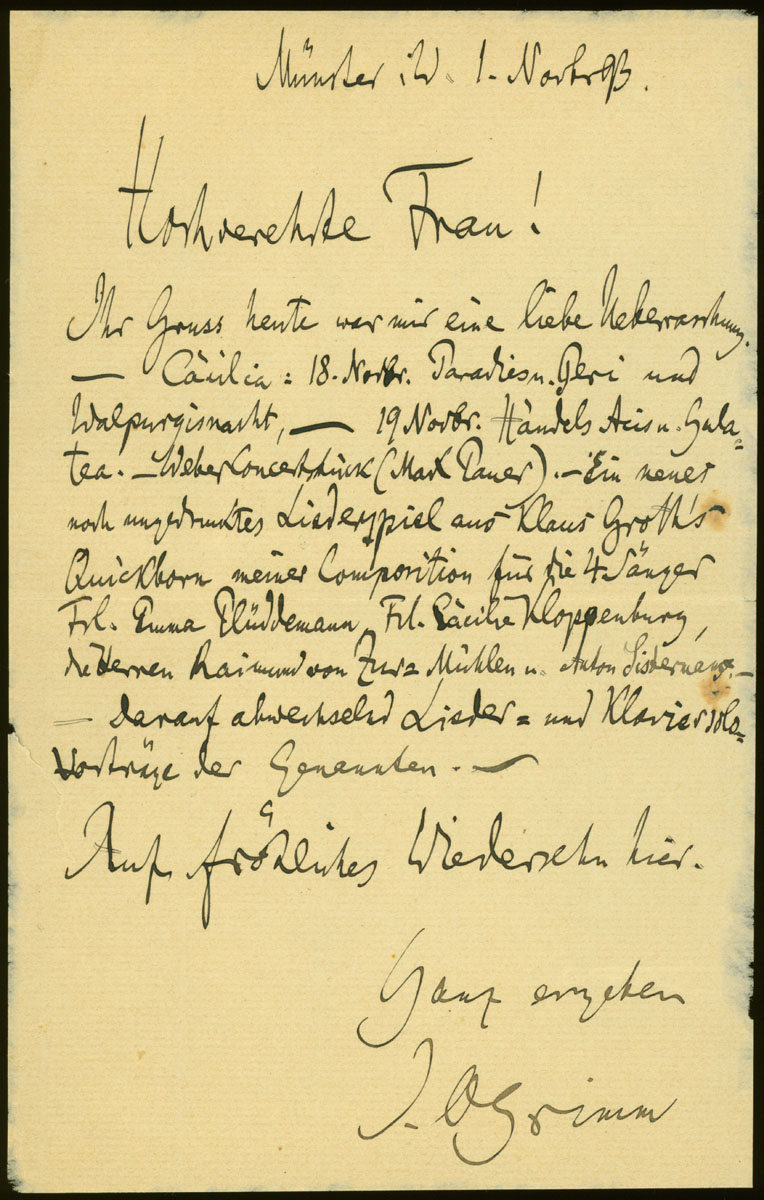 Münster i/W. 1. Novbr 93.
Hochverehrte Frau!
Ihr Gruss heute war mir eine liebe Ueberraschung.
— Cäcilia: 18. Novbr. Paradies u. Peri und
Walpurgisnacht, — 19 Novbr. Händels Acis u. Gala=
tea. — Weber Concertstück (Max Pauer). — Ein neues
noch ungedrucktes Liederspiel aus Klaus Groth's
Quickborn meiner Composition für die 4 Sänger
Frl. Emma Plüddemann, Frl. Cäcilie Kloppenburg,
die Herren Raimund von Zur= Mühlen u. Anton Sistermans. —
— Darauf abwechselnd Lieder= und Klaviersolo=
Vorträge der Genannten. —
Auf fröhliches Wiedersehn hier.
Ganz ergeben
J. O Grimm